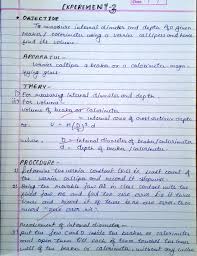 EXPERIMENT-3
• OBJECTIVE
To measure internal diameter and depth of a given
beaker / calorimeter using a vernier callipers and hence
find its volume.
APPARATUS -
Vernier callipers a beaker or a calorimeter, magni-
fying glass
THEORY -
For measuring internal diameter and depth
For volume
Volume of beaker or calorimeter
= internal area of cross section × depth
or V = π(D/2)². d
where, D = internal diameter of beaker/calorimeter
d = depth of beaker / calorimeter
PROCEDURE -
1) Determine the vernier constant i.e. least count of
the vernier callipers and record it stepwise
2) Bring the movable jaw BD in close contact with the
fixed jaw AC and find the zero error. Do it three
times and record it. If there is no zero error then
record 'zero error nil'
Measurement of internal diameter -
Put the jaws C and D inside the beaker or calorimeter
and open them till each of them touches the inner
wall of the beaker or calorimeter, without any